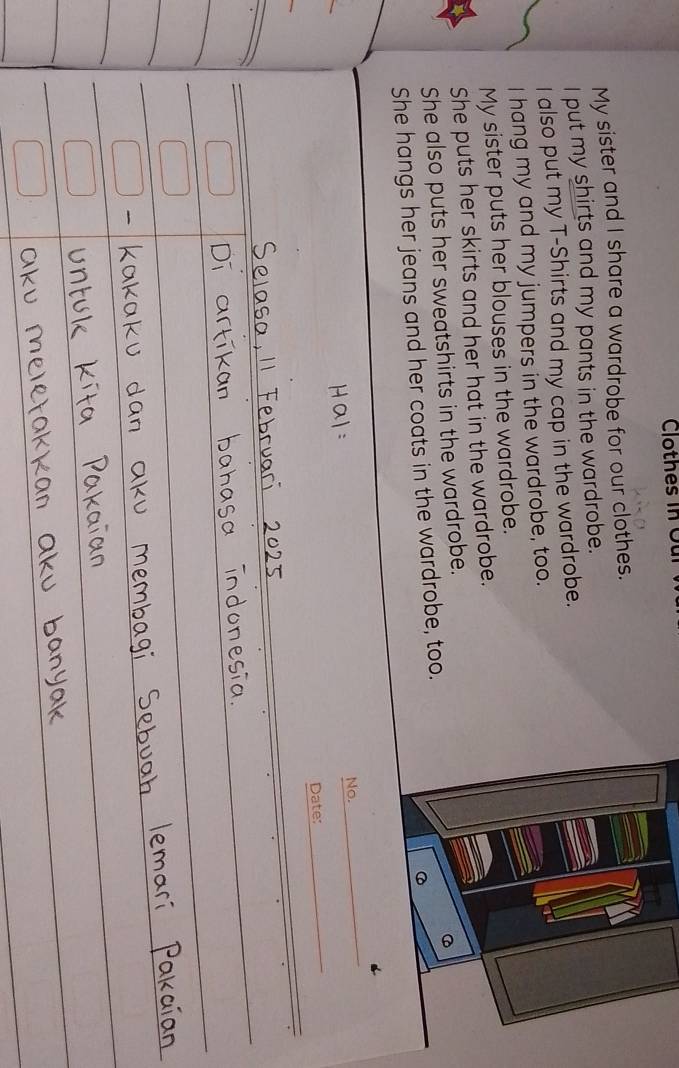 Clothes in Our
My sister and I share a wardrobe for our clothes.
I put my shirts and my pants in the wardrobe.
I also put my T-Shirts and my cap in the wardrobe.
I hang my and my jumpers in the wardrobe, too.
My sister puts her blouses in the wardrobe.
She puts her skirts and her hat in the wardrobe.
She also puts her sweatshirts in the wardrobe.
She hangs her jeans and her coats in the wardrobe, too.
Hal:
No.
Date:
Selasa, 11 Februari 2025
Di artikan bahasa indonesia.
- Kakaku dan aku membagi Sebuah lemari Pakaian
untuk kita Pakaian
aku meletakkan aku banyak